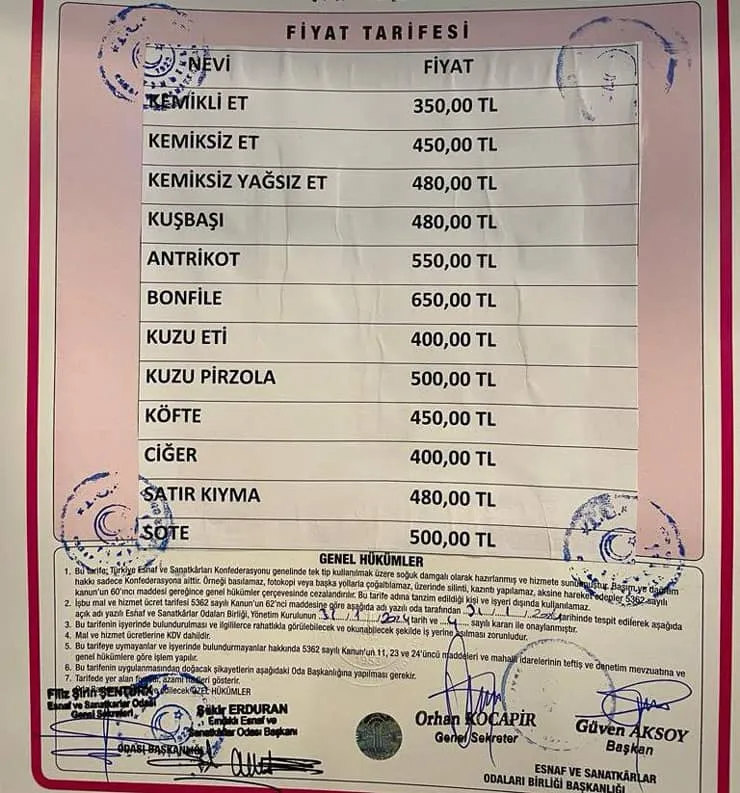 FİYAT TARİFESİ
NEVİ FİYAT
KEMİKLİ ET 350,00 TL
KEMİKSİZ ET 450,00 TL
KEMİKSİZ YAĞSIZ ET 480,00 TL
KUŞBAŞI 480,00 TL
ANTRİKOT 550,00 TL
BONFİLE 650,00 TL
KUZU ETİ 400,00 TL
KUZU PİRZOLA 500,00 TL
KÖFTE 450,00 TL
CİĞER 400,00 TL
SATIR KIYMA 480,00 TL
SOTE 500,00 TL
GENEL HÜKÜMLER
1. Bu tarife; Türkiye Esnaf ve Sanatkârları Konfederasyonu genelinde tek tip kullanılmak üzere soğuk damgalı olarak hazırlanmış ve hizmete sunulmuştur. Basım ve dağıtım
hakkı sadece Konfederasyona aittir. Örneği basılamaz, fotokopi veya başka yollarla çoğaltılamaz, üzerinde silinti, kazıntı yapılamaz, aksine hareket edenler 5362 sayılı
kanun'un 60'ıncı maddesi gereğince genel hükümler çerçevesinde cezalandırılır. Bu tarife adına tanzim edildiği kişi ve işyeri dışında kullanılamaz.
2. İşbu mal ve hizmet ücret tarifesi 5362 sayılı Kanun'un 62'nci maddesine göre aşağıda adı yazılı oda tarafından 31/1/2024 tarihinde tespit edilerek aşağıda
açık adı yazılı Esnaf ve Sanatkârlar Odaları Birliği, Yönetim Kurulunun 31/1/2024 tarih ve 4 sayılı kararı ile onaylanmıştır.
3. Bu tarifenin işyerinde bulundurulması ve ilgililerce rahatlıkla görülebilecek ve okunabilecek şekilde iş yerine asılması zorunludur.
4. Mal ve hizmet ücretlerine KDV dahildir.
5. Bu tarifeye uymayanlar ve işyerinde bulundurmayanlar hakkında 5362 sayılı Kanun'un 11, 23 ve 24'üncü maddeleri ve mahalli idarelerinin teftiş ve denetim mevzuatına ve
genel hükümlere göre işlem yapılır.
6. Bu tarifenin uygulanmasından doğacak şikayetlerin aşağıdaki Oda Başkanlığına yapılması gerekir.
7. Tarifede yer alan fiyatlar, azami hadleri gösterir.
ÖZEL HÜKÜMLER
Filiz Şirin ŞENTÜRK
Esnaf ve Sanatkarlar Odası
Genel Sekreteri
Şakir ERDURAN
Emekli Esnaf ve
Sanatkarlar Odası Başkanı
ODASI BAŞKANLIĞI
Orhan KOCAPİR
Genel Sekreter
Güven AKSOY
Başkan
ESNAF VE SANATKÂRLAR
ODALARI BİRLİĞİ BAŞKANLIĞI